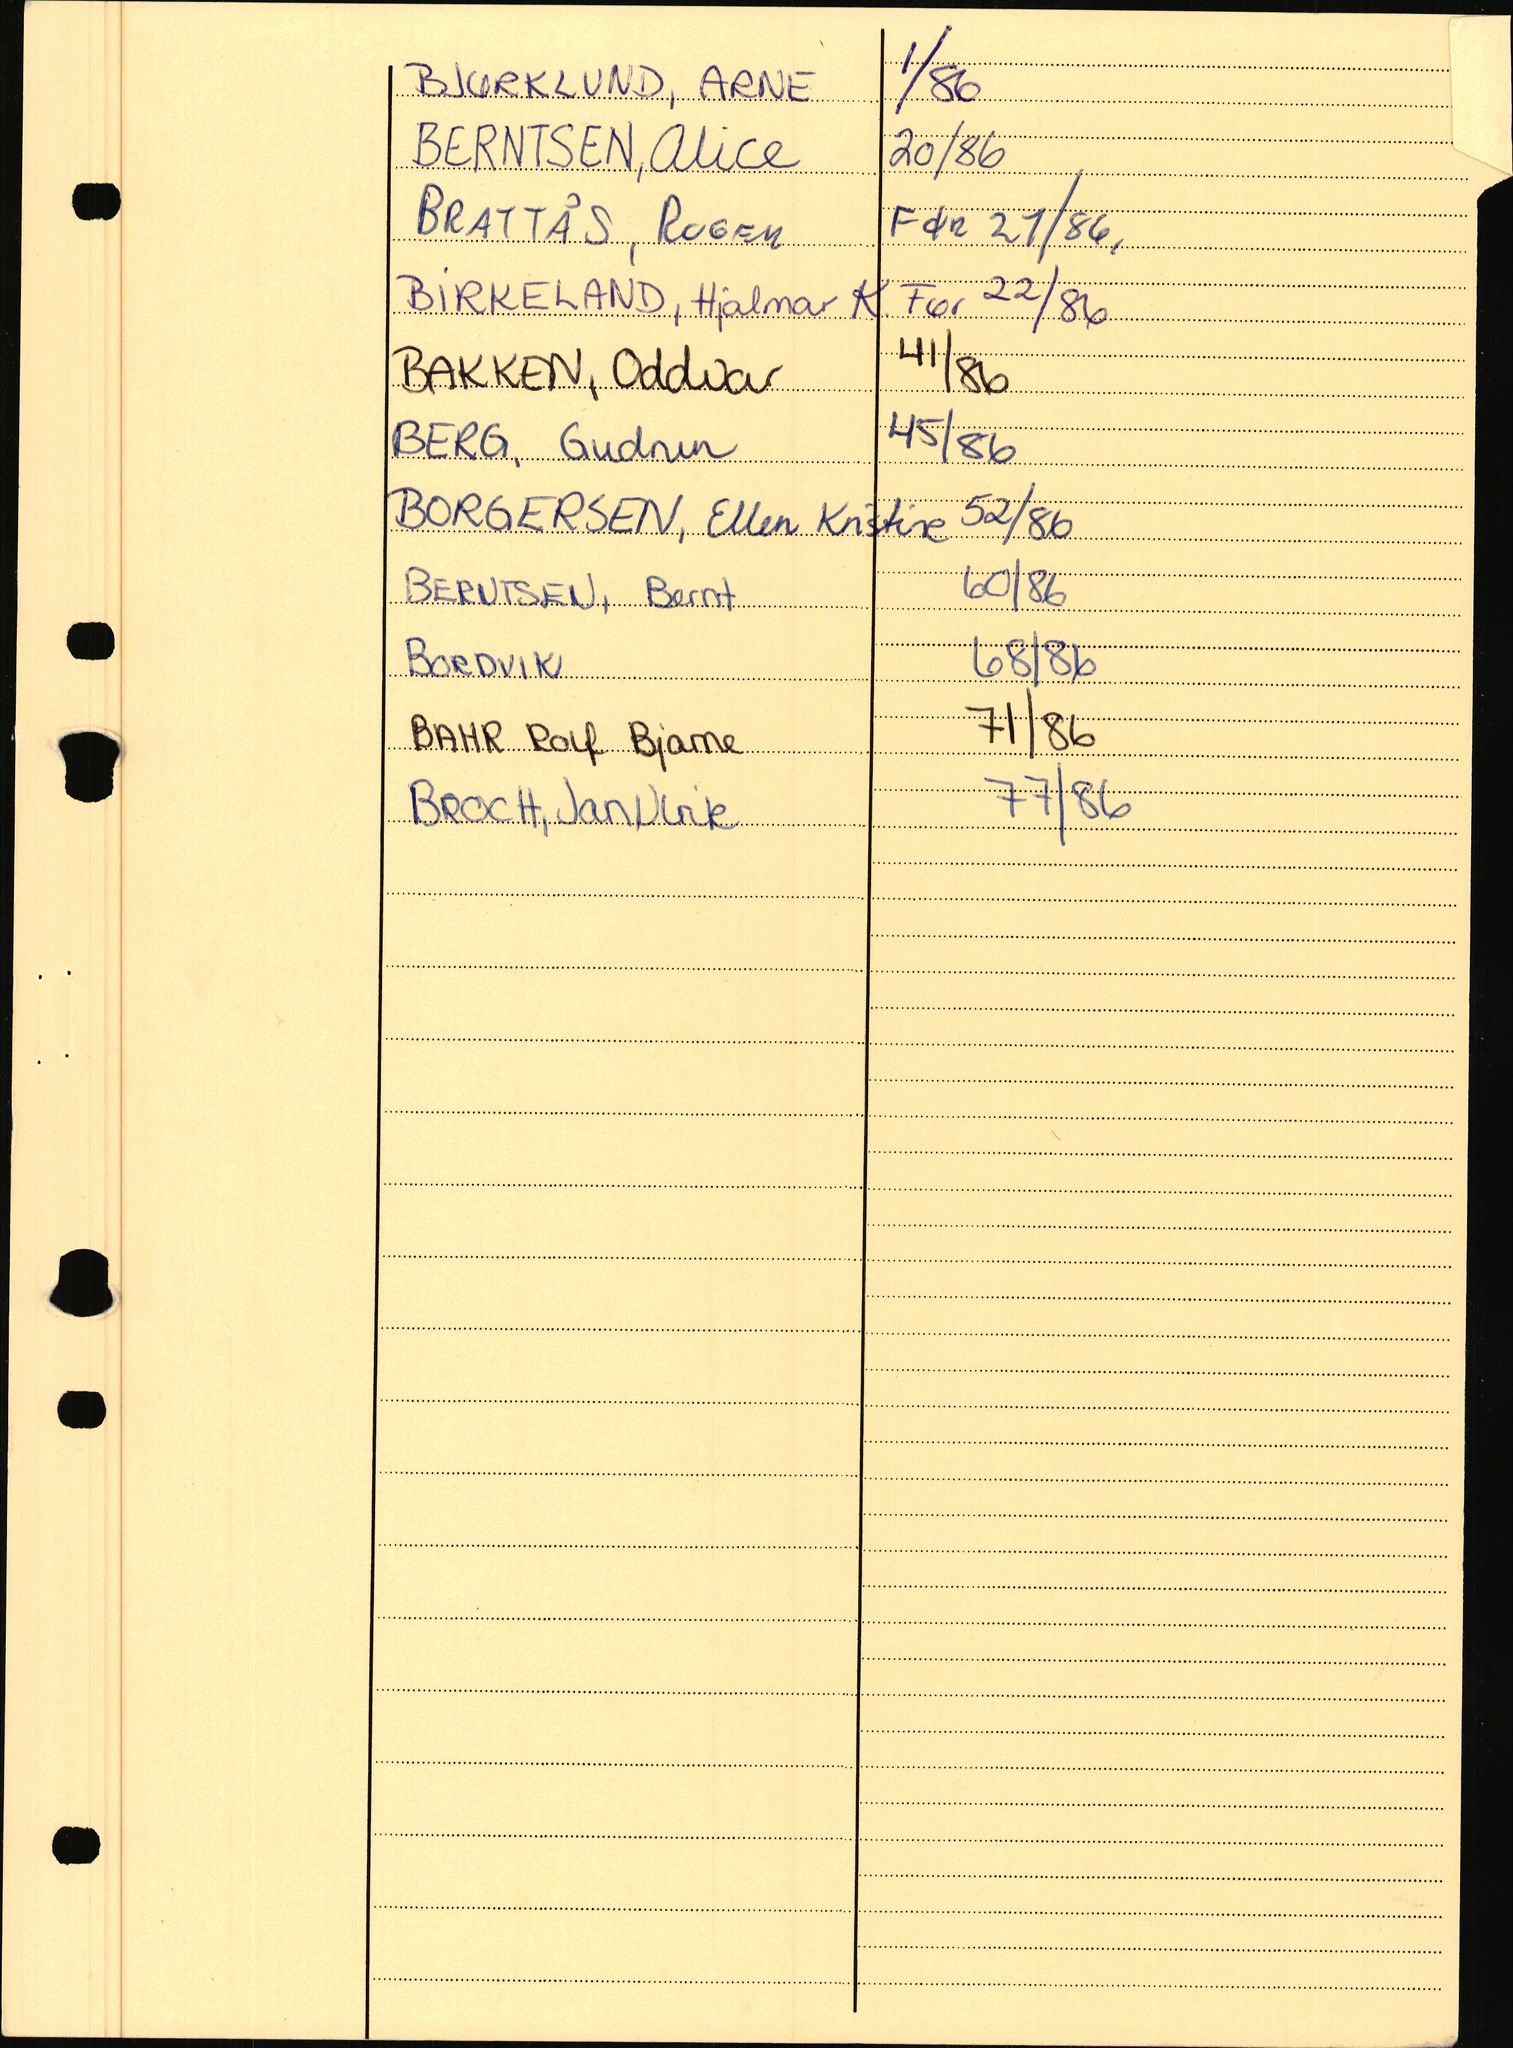 BJØRKLUND, ARNE 1/86
BERNTSEN, Alice 20/86
BRATTÅS, ROGER Før 21/86,
BIRKELAND, Hjalmar K. Før 22/86
BAKKEN, Oddvar 41/86
BERG, Gudrun 45/86
BORGERSEN, Ellen Kristine 52/86
BERNTSEN, Bernt 60/86
BORDVIK 68/86
BAHR Rolf Bjarne 71/86
BROCH, Jan Ulrik 77/86